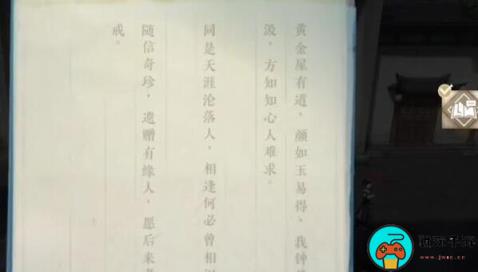 黄金屋有道，颜如玉易得，我钟
汲，方知知心人难求。
同是天涯沦落人，相逢何必曾相识
随信奇珍，遗赠有缘人，愿后来者
戒。